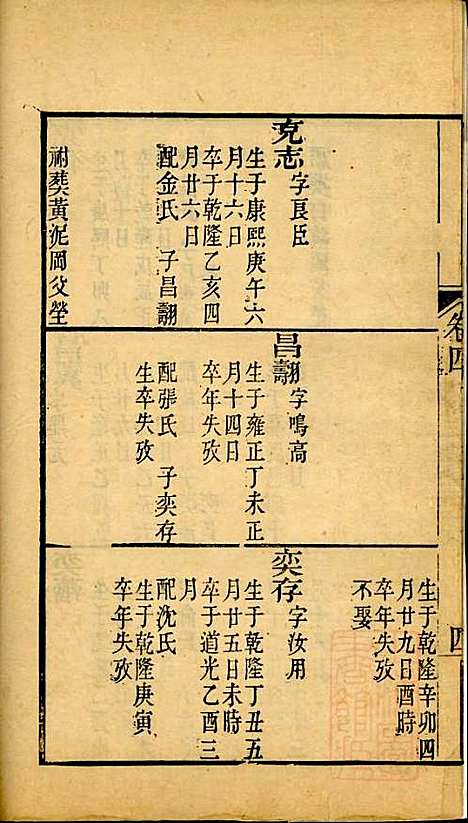 克志
字良臣
生于康熙庚午六
月十六日
卒于乾隆乙亥四
月廿六日
配金氏 子昌翿
祔葬黃泥岡父塋
昌翿
字鳴高
生于雍正丁未正
月十四日
卒年失攷
配張氏 子奕存
生卒失攷
生于乾隆辛卯四
月廿九日酉時
卒年失攷
不娶
奕存
字汝用
生于乾隆丁丑五
月廿五日未時
卒于道光乙酉三
月
配沈氏
生于乾隆庚寅
卒年失攷
卷四
四